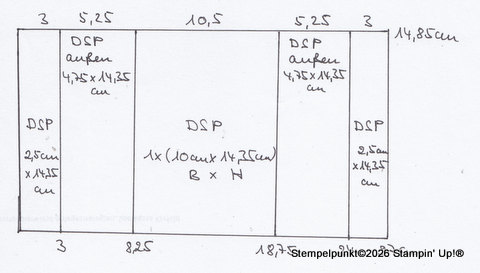 3 5,25 10,5 5,25 3
14,85cm
DSP
außen
4,75 x 14,35
cm
DSP
außen
4,75 x 14,35
cm
DSP
2,5cm
x 14,35
cm
DSP
1x (10cm x 14,35cm)
B x H
DSP
2,5cm
x 14,35
cm
3 8,25 18,75
Stempelpunkt©2026 Stampin' Up!®